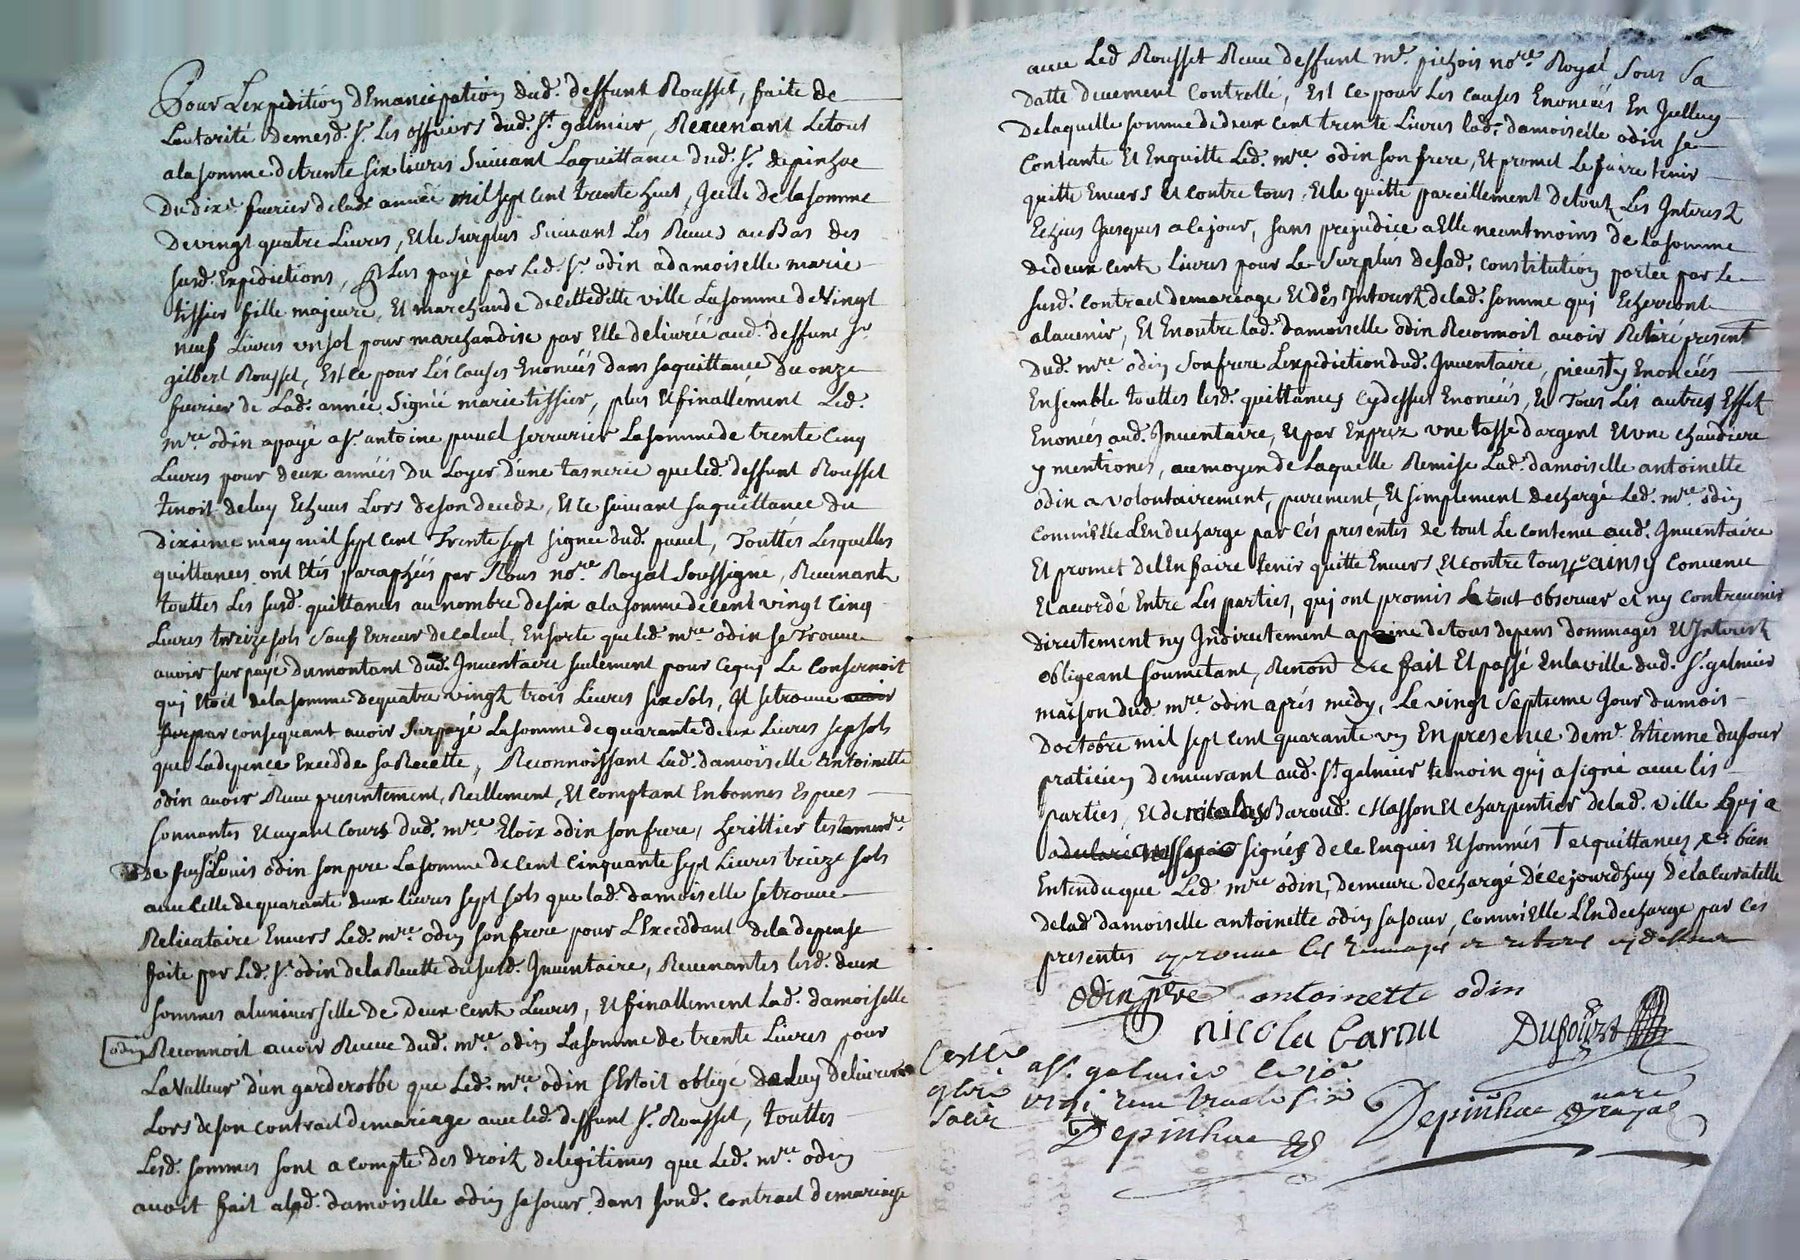 Pour Lexpedition dEmancipation dud. deffunt Rousset, faite de
Lautorité demesd. Srs Les officiers dud. St galmier, Revenant Letout
alasomme detrente six livres Suivant Laquittance dud. Sr. depinhac
Dudixe. fuvrier delade année mil sept cent trente huit, Jcelle de lasomme
Devingt quatre Livres, Et le Surplus Suivant Les Reeues au Bas des
susd. Expeditions, Plus payé par Led. Sr odin a damoiselle marie
tissier fille majeure, Et marchande decettedette ville Lasomme deVingt
neuf Livres unsol pour marchandise par Elle delivréé aud. deffunt Sr
gilbert Rousset, Est ce pour Lés Causes Enoncéés dans saquittance du onze
fuvrier de Lad. année, Signéé marie tissier, plus Et finallement Led.
mre odin apayé a Sr antoine puuel serrurier Lasomme de trente Cinq
Livres pour deux annéés Du Loyer d'une tasnerie que led. deffunt Rousset
tenoit deluy Echues Lors deson decedz, Et ce suivant saquittance du
Dixieme may mil sept cent Trente sept signéé dud. puuel, Touttes Lesquelles
quittances ont étés paraphéés par Nous nore. Royal Soussigne, Revenants
touttes Les susd. quittances au nombre de six a la somme decent vingt Cinq
Livres treize sols sauf Erreur de calcul, Ensorte que led. mre odin se Trouve
avoir sur payé dumontant dud. Inventaire seulement pour cequy Le Consernoit
qui Etoit delasomme dequatre vingt trois Livres six sols, Jl se trouve
par consequant avoir Surpayé Lasomme de quarante deux Livres sept sols
que Ladepence Execdde sa Recette, Reconnoissant Lad. damoiselle Antoinette
odin avoir Receu presentement, Reellement, Et comptant Enbonnes Especes
sonnantes Et ayant Cours dud. mre Eloix odin son frere, heritier testamentre.
de feu Sr Louis odin son pere Lasomme de cent Cinquante sept Livres treize sols
avec Celle de quarante deux livres sept sols que lad. damoiselle se trouve
Relicataire Envers Led. mre odin son frere pour L'Execddant dela depense
faite par Led. Sr odin de la Recette du susd. Inventaire, Revenantes lesd. deux
sommes a luniverselle de deux cent Livres, Et finallement Lad. damoiselle
odin Reconnoit avoir Receue dud. mre odin Lasomme de trente Livres pour
LaValleur d'un garderobbe que Led. mre odin S'Estoit obligé deluy delivrer
Lors deson contract demariage avec led. deffunt Sr Rousset, touttes
Lesd. sommes sont a compte des droits delegitimes que Led. mre odin
avoit fait alad. damoiselle odin sa soeur dans sond. contract demariage
avec Led Rousset Receu deffunt me. pichois nore. Royal Sous Sa
datte deuement Controllé, Est ce pour Les Causes Enoncéés En Jcelluy
Delaquelle somme dedeux cent trente Livres lad. damoiselle odin se
Contante Et Enquitte Led. mre odin son frere, Et promet Le faire tenir
quitte Envers Et contre tous, Et le quitte pareillement detout Les Interest
Echeus Jusques a cejour, sans prejudice a Elle neantmoins de la somme
dedeux cent Livres pour Le Surplus delad. constitution portée par Le
susd. contract demariage Et des Interest delad. somme qui Echerront
alavenir, Et Enoutre lad. damoiselle odin Reconnoit avoir Retiré present
dud. mre odin son frere L'expedition dud. Inventaire, pieces y Enoncéés
Ensemble touttes lesd. quittances cydessus Enoncéés, Et Tous Lés autres Effets
Enoncés aud. Inventaire, Et par Exprez une tasse d'argent Et une chaudiere
y mentionés, au moyen de Laquelle Remise Lad. damoiselle antoinette
odin a volontairement, purement, Et simplement dechargé Led. mre odin
comm'Elle L'En decharge par cés presentes de tout Le contenu aud. Inventaire
Et promet del'En faire tenir quitte Envers Et contre tous, ainsy Convenu
Et accordé Entre Les parties, qui ont promis Le tout observer et ny contrevenir
directement ny Indirectement apeine de tous depens dommages Et Interest
obligeant soumetant, Renont &c fait Et passé En laville dud. St galmier
maison dud. mre odin aprés midy, Le vingt Septieme Jour dumois
Doctobre mil sept cent quarante un En presence de mr. Estienne dufour
praticien demeurant aud. St galmier temoin qui a signé avec les
parties, Et de nicolas Baroud. Masson Et charpentier delad. ville
signés de ce Enquis Et sommés bien
Entendu que Led. mre odin, demeure dechargé Dé ce jourdhuy de la curatelle
delad damoiselle antoinette odin sa soeur, comm'Elle L'En decharge par Ces
presentes aprouve les
odin antoinette odin
nicola barou Dufour
Contlé a St. galmier le
Depinhac Depinhac nore royal